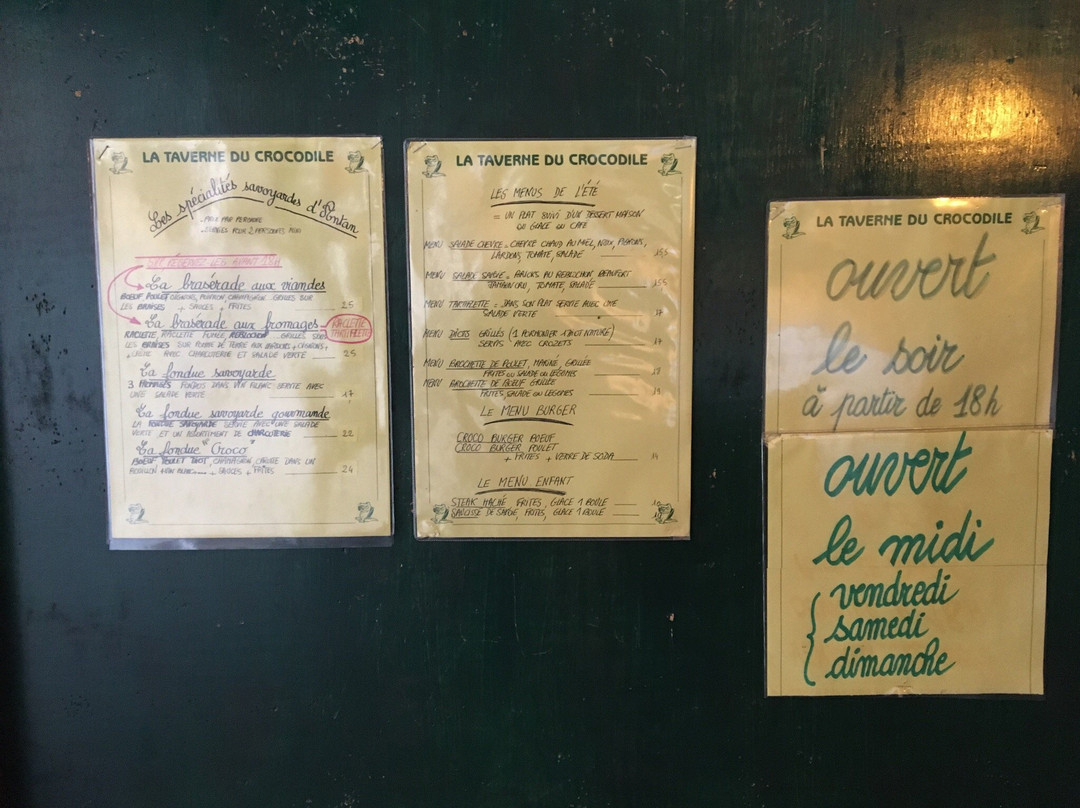 LA TAVERNE DU CROCODILE
Les spécialités savoyardes d'Antan
- PRIX PAR PERSONNE
- SERVIES POUR 2 PERSONNES MINI
La brasérade aux viandes
BOEUF POULET OIGNONS, POIVRON, CHAMPIGNON GRILLÉS SUR
LES BRAISES + SAUCES + FRITES 25
La brasérade aux fromages
RACLETTE
TARTIFLETTE
RACLETTE, RACLETTE FUMÉE, REBLOCHON GRILLÉS SUR
LES BRAISES SUR POMME DE TERRE AUX LARDONS, OIGNONS,
+ CRÈME AVEC CHARCUTERIE ET SALADE VERTE 25
La fondue savoyarde
3 FROMAGES FONDUS DANS VIN BLANC SERVIE AVEC
UNE SALADE VERTE 17
La fondue savoyarde gourmande
LA FONDUE SAVOYARDE SERVIE AVEC UNE SALADE
VERTE ET UN ASSORTIMENT DE CHARCUTERIE 22
La fondue "Croco"
BOEUF, POULET, DIOT, CHAMPIGNON CUITS DANS UN
BOUILLON + SAUCES + FRITES 24
LA TAVERNE DU CROCODILE
LES MENUS DE L'ÉTÉ
= UN PLAT SUIVI D'UN DESSERT MAISON
OU GLACE OU CAFÉ
MENU SALADE CHÈVRE = CHÈVRE CHAUD AU MIEL, NOIX,
LARDONS, TOMATE, SALADE
MENU SALADE SAVOIE = AU REBLOCHON BEAUFORT
JAMBON CRU, TOMATE, SALADE
MENU TARTIFLETTE = DANS SON PLAT SERVIE AVEC UNE
SALADE VERTE 17
MENU DIOTS GRILLÉS (1 PORMONIER 1 DIOT NATURE)
SERVIS AVEC CROZETS 17
MENU BROCHETTE DE POULET, MARINÉ, GRILLÉE
FRITES OU SALADE OU LÉGUMES
MENU BROCHETTE DE BOEUF GRILLÉE
FRITES, SALADE OU LÉGUMES
LE MENU BURGER
CROCO BURGER BOEUF
CROCO BURGER POULET
+ FRITES + VERRE DE SODA 14
LE MENU ENFANT
STEAK HACHÉ FRITES, GLACE 1 BOULE
SAUCISSE DE SAVOIE, FRITES, GLACE 1 BOULE
LA TAVERNE DU CROCODILE
ouvert
le soir
à partir de 18h
ouvert
le midi
vendredi
samedi
dimanche